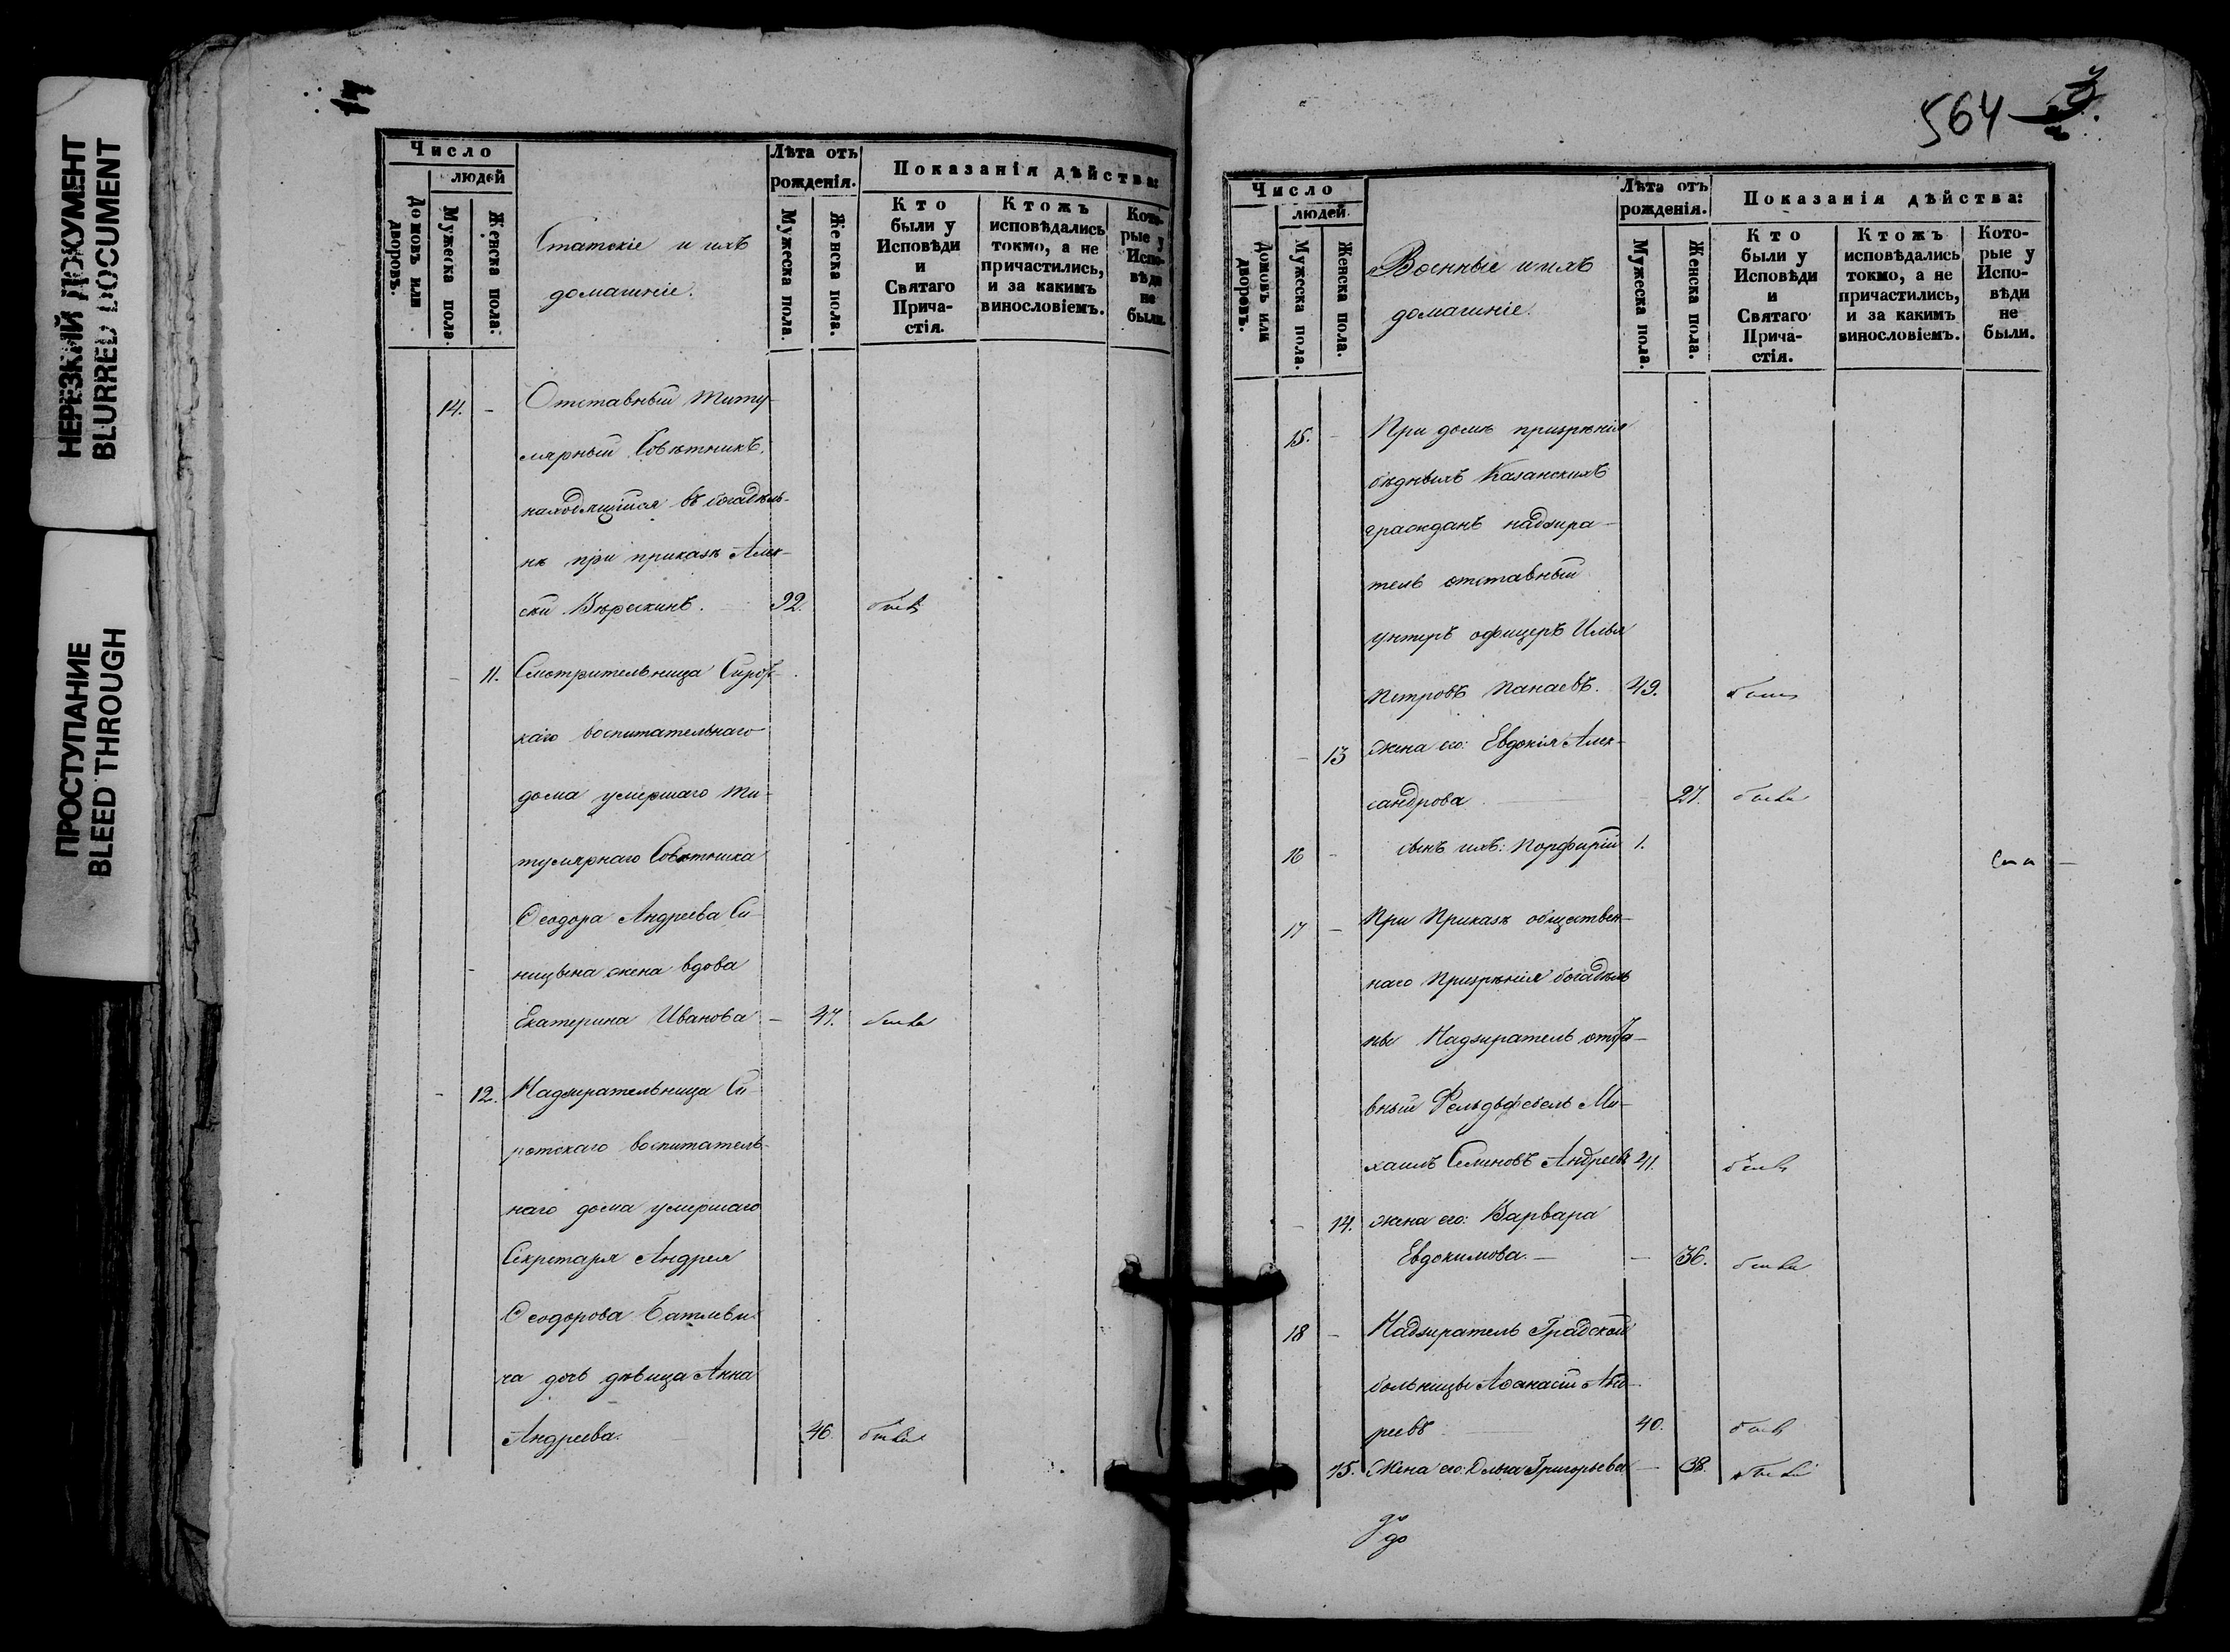 НЕРЕЗКИЙ ДОКУМЕНТ
BLURRED DOCUMENT
ПРОСТУПАНИЕ
BLEED THROUGH
Число
людей
Домовъ или дворовъ.
Мужеска пола.
Женска пола.
Статскіе и ихъ
домашніе.
Лѣта отъ
рожденія.
Мужеска пола.
Женска пола.
Показанія дѣйства:
Кто
были у
Исповѣди
и
Святаго
Прича-
стія.
Ктожъ
исповѣдались
токмо, а не
причастились,
и за какимъ
винословіемъ.
Кото-
рые у
Испо-
вѣди
не
были.
14. - Отставный титу-
лярный Совѣтникъ,
находящійся въ богадѣль-
нѣ при приказѣ Алек-
сѣй 92. былъ
- 11. Смотрительница Сирот-
скаго воспитательнаго
дома умершаго ти-
тулярнаго Совѣтника
Ѳеодора Андреева Си-
ницына жена вдова
Екатерина Иванова - 47. была
- 12. Надзирательница Си-
ротскаго воспитатель-
наго дома умершаго
Секретаря Андрея
Ѳеодорова
ча дочь дѣвица Анна
Андреева. 46. была
564
Число
людей
Домовъ или дворовъ.
Мужеска пола.
Женска пола.
Военные и ихъ
домашніе.
Лѣта отъ
рожденія.
Мужеска пола.
Женска пола.
Показанія дѣйства:
Кто
были у
Исповѣди
и
Святаго
Прича-
стія.
Ктожъ
исповѣдались
токмо, а не
причастились,
и за какимъ
винословіемъ.
Кото-
рые у
Испо-
вѣди
не
были.
15. - При домѣ призрѣнія
бѣдныхъ Казанскихъ
гражданъ надзира-
тель отставный
унтеръ офицеръ Илья
Петровъ Панаевъ. 49. былъ
- 13 жена его: Евдокія Алек-
сандрова 27. была
16 - сынъ ихъ: Порфирій 1.
17 - При Приказѣ обществен-
наго Призрѣнія богадѣль
ны Надзиратель отста-
вный Фельдфебель Ми-
хаилъ Семеновъ Андреевъ 41. былъ
- 14. жена его: Варвара
Евдокимова. - - 36. была
18 - Надзиратель Градской
больницы Аѳанасій Анд-
реевъ 40. былъ
15. Жена его: Ольга Григорьева - 38. была